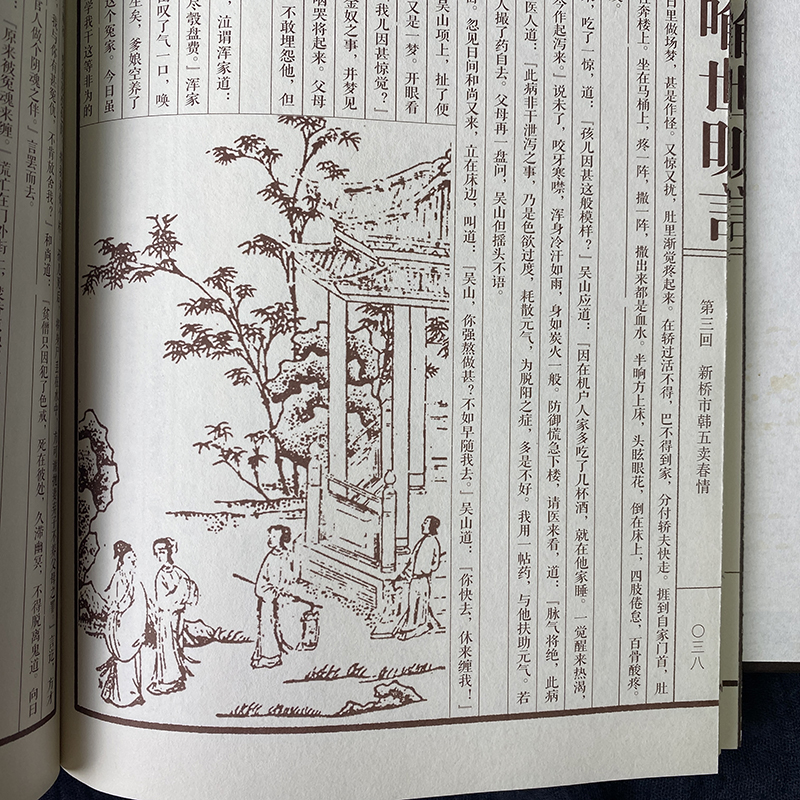 喻世明言
第三回 新桥市韩五卖春情
〇三八
日里做场梦,甚是作怪。又惊又扰,肚里渐觉疼起来。在轿过活不得,巴不得到家,分付轿夫快走。捱到自家门首,肚
奔楼上。坐在马桶上,疼一阵,撒一阵,撒出来都是血水。半晌方上床,头眩眼花,倒在床上,四肢倦怠,百骨酸疼。
来,吃了一惊,道:“孩儿因甚这般模样?”吴山应道:“因在机户人家多吃了几杯酒,就在他家睡。一觉醒来热渴,
今作起泻来。”说未了,咬牙寒噤,浑身冷汗如雨,身如炭火一般。防御慌急下楼,请医来看,道:“脉气将绝,此病
医人道:“此病非干泄泻之事,乃是色欲过度,耗散元气,为脱阳之症,多是不好。我用一帖药,与他扶助元气。若
人撮了药自去。父母再三盘问,吴山但摇头不语。
忽见日间和尚又来,立在床边,叫道:“吴山,你强熬做甚?不如早随我去。”吴山道:“你快去,休来缠我!”
吴山项上,扯了便
又是一梦。开眼看
我儿因甚惊觉?”
金奴之事,并梦见
咽哭将起来。父母
不敢埋怨他,但
泣谓浑家道:
尽彀盘费。”浑家
叹了气一口,唤
生矣,爹娘空养了
这个冤家。今日虽
学我干这等非为的
不肯放舍我?”和尚道:“贫僧只因犯了色戒,死在彼处,久滞幽冥,不得脱离鬼道。向日
官人做个阴魂之伴。”言罢而去。
“原来被冤魂来缠。”慌忙在门外街